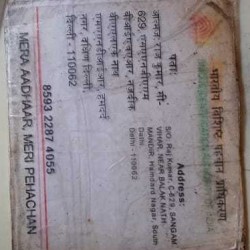 भारतीय विशिष्ट पहचान प्राधिकरण
पता:
राज कुमार, सी-
629,
वीआईएचएआर, नजदीक
नाथ
एमएएनडीआईआर, हमदर्द
नगर, दक्षिण दिल्ली,
दिल्ली - 110062
Address:
S/O: Raj Kumar, C-629, SANGAM
VIHAR, NEAR BALAK NATH
MANDIR, Hamdard Nagar, South
Delhi,
Delhi - 110062
8593 2287 4055
MERA AADHAAR, MERI PEHACHAN